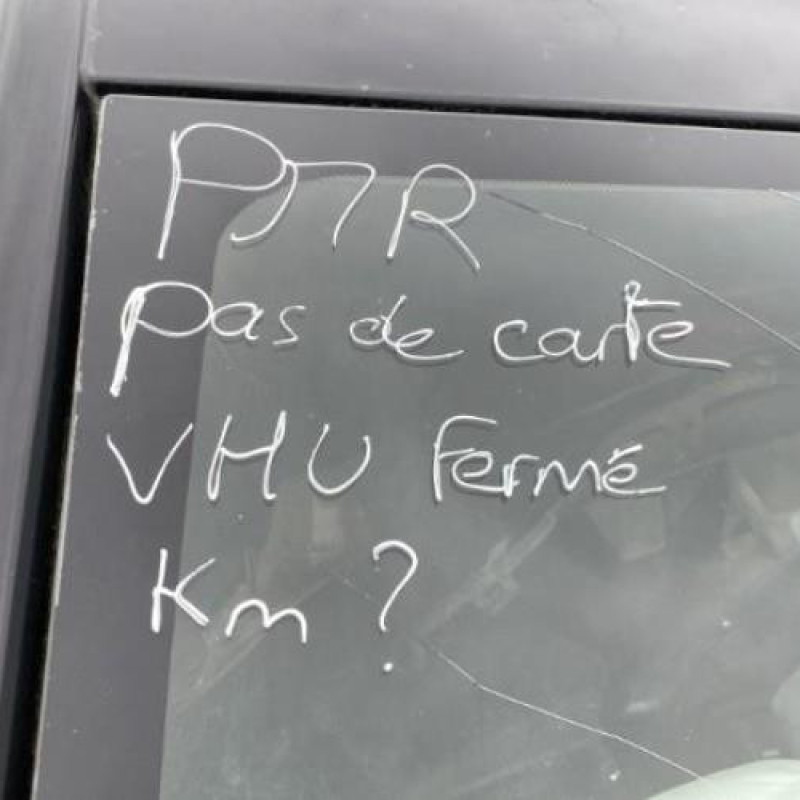 PMR
Pas de carte
VHU Fermé
Km ?